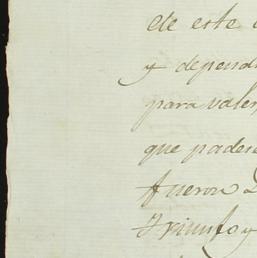 de este
y depend
para valer
que padec
fueron
Triunfo y